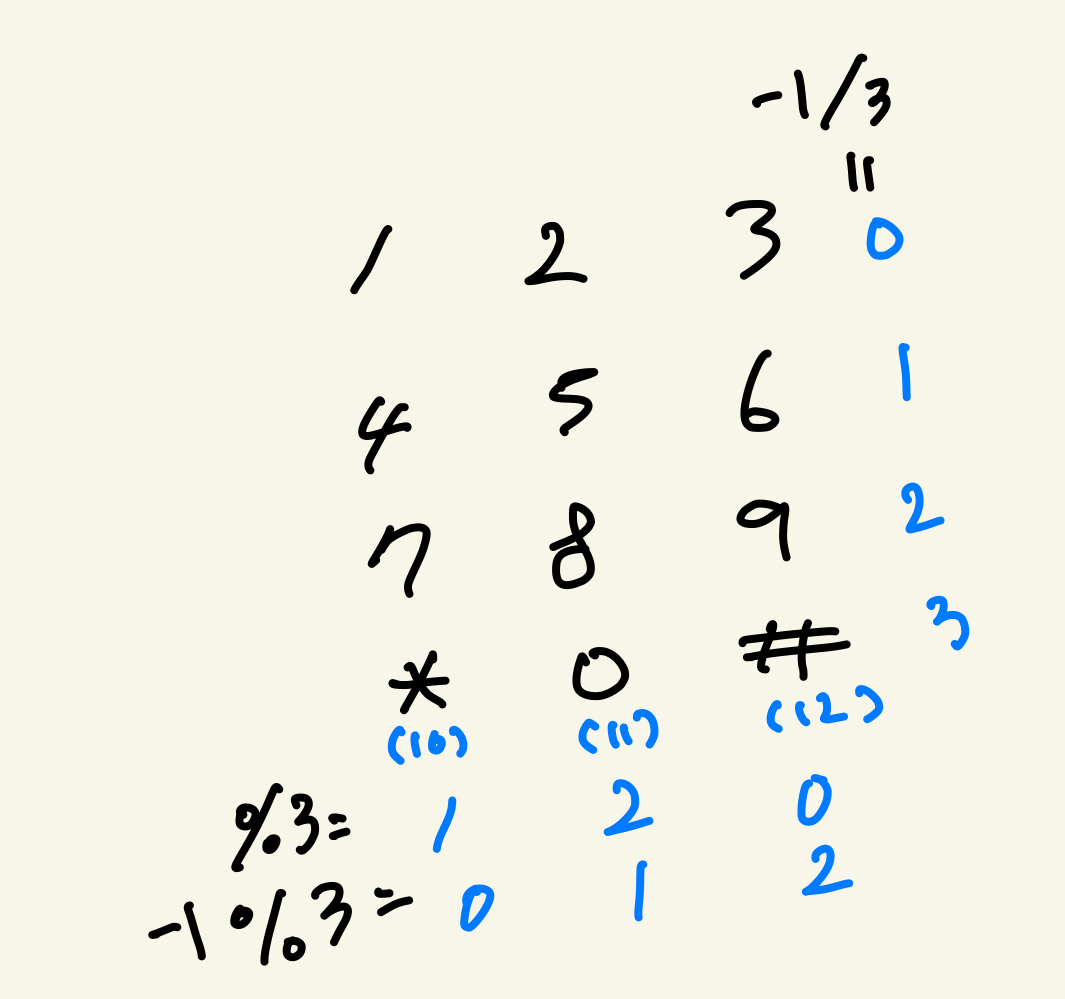 -1/3
=
1 2 3 0
4 5 6 1
7 8 9 2
* 0 # 3
(10) (11) (12)
%3= 1 2 0
-1%3= 0 1 2